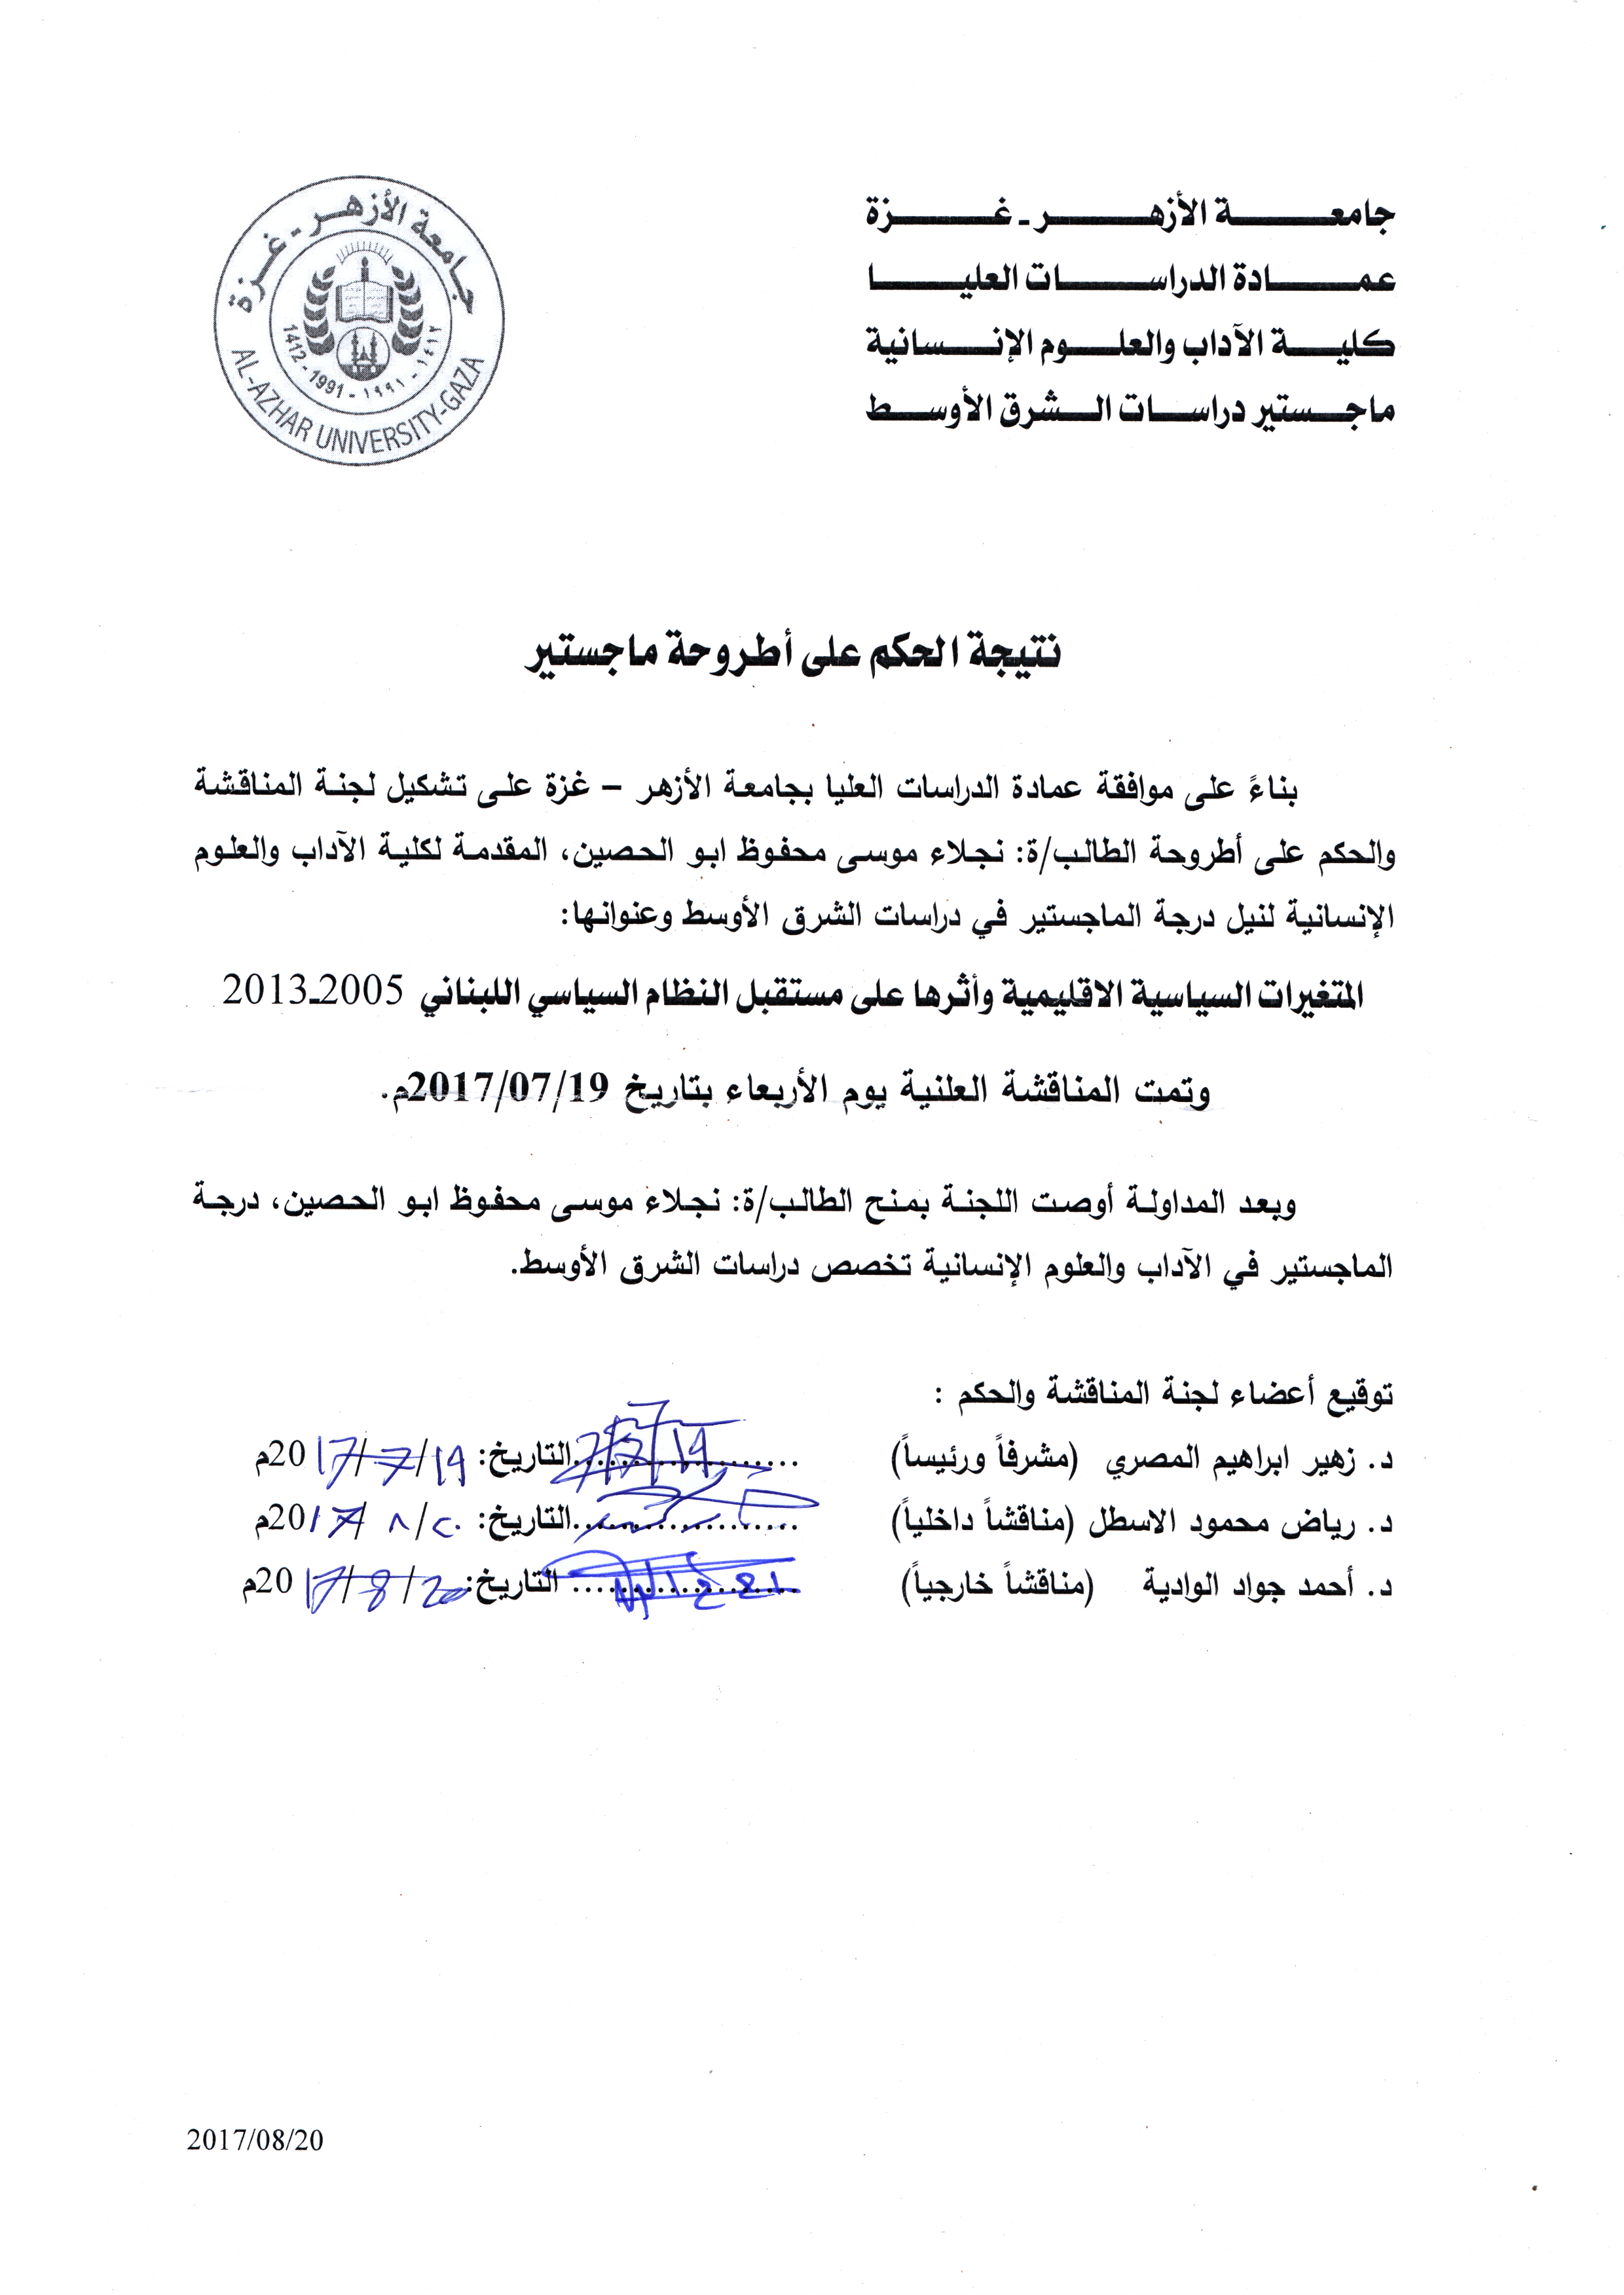 جامعة الأزهر - غزة
عمادة الدراسات العليا
كلية الآداب والعلوم الإنسانية
ماجستير دراسات الشرق الأوسط
جامعة الأزهر - غزة
1412 - 1991 - ١٩٩١ - ١٤١٢
AL-AZHAR UNIVERSITY-GAZA
نتيجة الحكم على أطروحة ماجستير
بناءً على موافقة عمادة الدراسات العليا بجامعة الأزهر – غزة على تشكيل لجنة المناقشة
والحكم على أطروحة الطالب/ة: نجلاء موسى محفوظ ابو الحصين، المقدمة لكلية الآداب والعلوم
الإنسانية لنيل درجة الماجستير في دراسات الشرق الأوسط وعنوانها:
المتغيرات السياسية الاقليمية وأثرها على مستقبل النظام السياسي اللبناني 2005ـ2013
وتمت المناقشة العلنية يوم الأربعاء بتاريخ 2017/07/19م.
وبعد المداولة أوصت اللجنة بمنح الطالب/ة: نجلاء موسى محفوظ ابو الحصين، درجة
الماجستير في الآداب والعلوم الإنسانية تخصص دراسات الشرق الأوسط.
توقيع أعضاء لجنة المناقشة والحكم :
د. زهير ابراهيم المصري (مشرفاً ورئيساً) ................... التاريخ: 19/7/2017م
د. رياض محمود الاسطل (مناقشاً داخلياً) ................... التاريخ: ٢٠/٨/2017م
د. أحمد جواد الوادية (مناقشاً خارجياً) ................... التاريخ: 20/8/2017م
2017/08/20